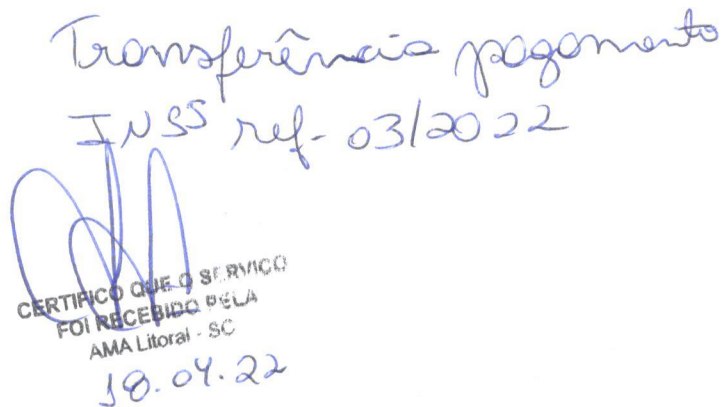 Transferência pagamento
INSS ref- 03/2022
CERTIFICO QUE O SERVIÇO
FOI RECEBIDO PELA
AMA Litoral - SC
18.04.22